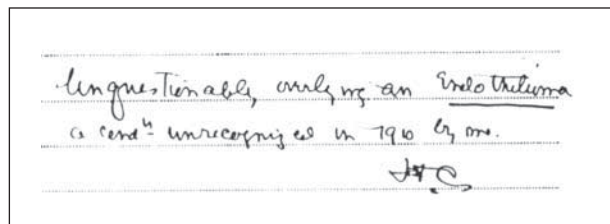 Unquestionably overlying an Endothelioma
a cond<sup>n</sup> unrecognized in 1910 by me.
H.C.